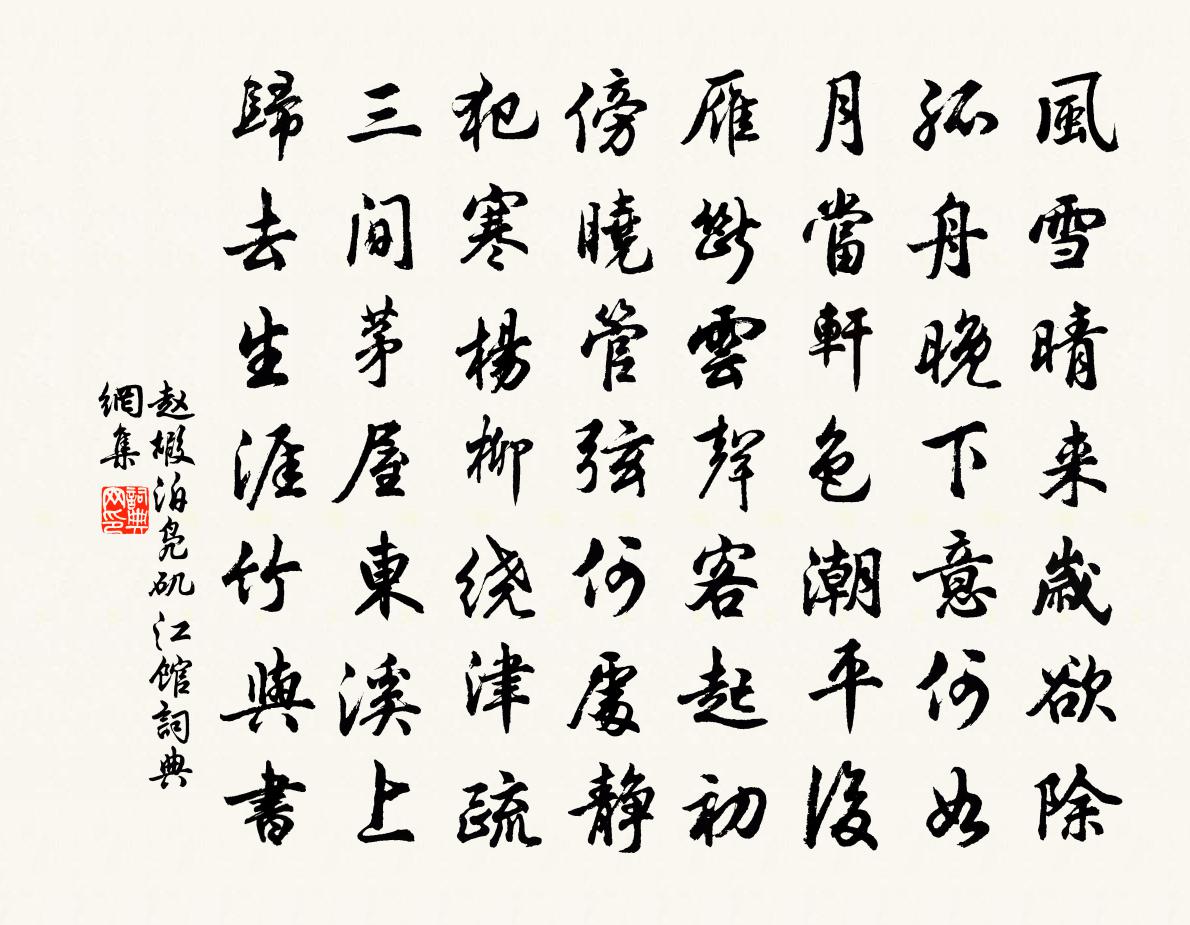 風雪晴来歳欲除
孤舟晚下意何如
月當軒色潮平後
雁斷雲聲客起初
傍曉管弦何處静
犯寒楊柳绕津疏
三间茅屋東溪上
歸去生涯竹與書
赵嘏泊凫矶江馆詞典
網集
詞典网印